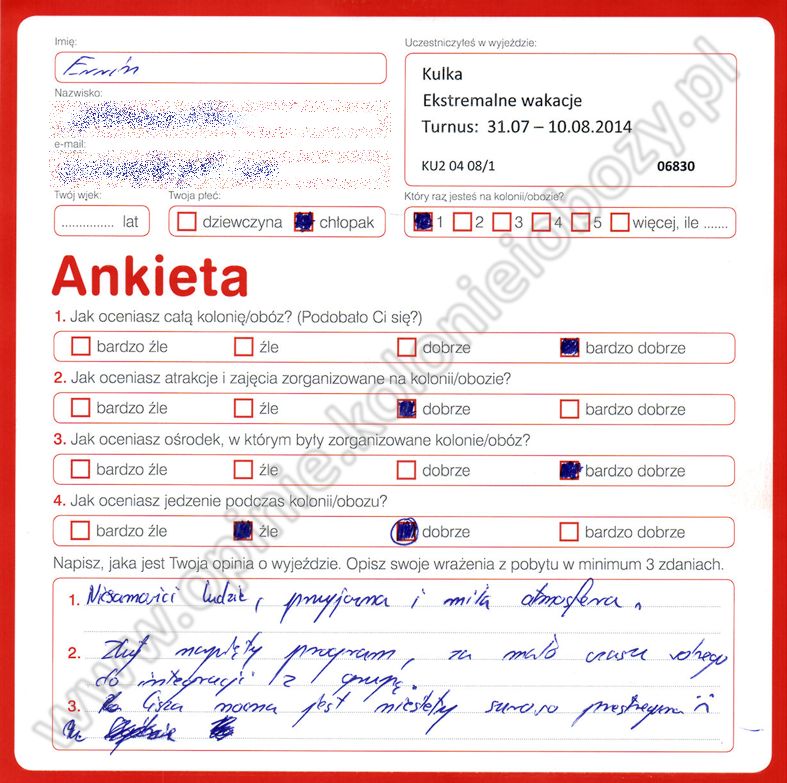 Imię:
Uczestniczyłeś w wyjeździe:
Kulka
Ekstremalne wakacje
Turnus: 31.07 – 10.08.2014
KU2 04 08/1 06830
Nazwisko:
e-mail:
Twój wjek:
Twoja płeć:
Który raz jesteś na kolonii/obozie?
............... lat
dziewczyna chłopak
1 2 3 4 5 więcej, ile .......
Ankieta
1. Jak oceniasz całą kolonię/obóz? (Podobało Ci się?)
bardzo źle źle dobrze bardzo dobrze
2. Jak oceniasz atrakcje i zajęcia zorganizowane na kolonii/obozie?
bardzo źle źle dobrze bardzo dobrze
3. Jak oceniasz ośrodek, w którym były zorganizowane kolonie/obóz?
bardzo źle źle dobrze bardzo dobrze
4. Jak oceniasz jedzenie podczas kolonii/obozu?
bardzo źle źle dobrze bardzo dobrze
Napisz, jaka jest Twoja opinia o wyjeździe. Opisz swoje wrażenia z pobytu w minimum 3 zdaniach.
1. Niesamowici ludzie, przyjazna i miła atmosfera.
2. Zbyt napięty program, za mało czasu wolnego
do integracji z grupą.
3. Cisza nocna jest niestety surowo przestrzegana
www.opinie.kolonieiobozy.pl